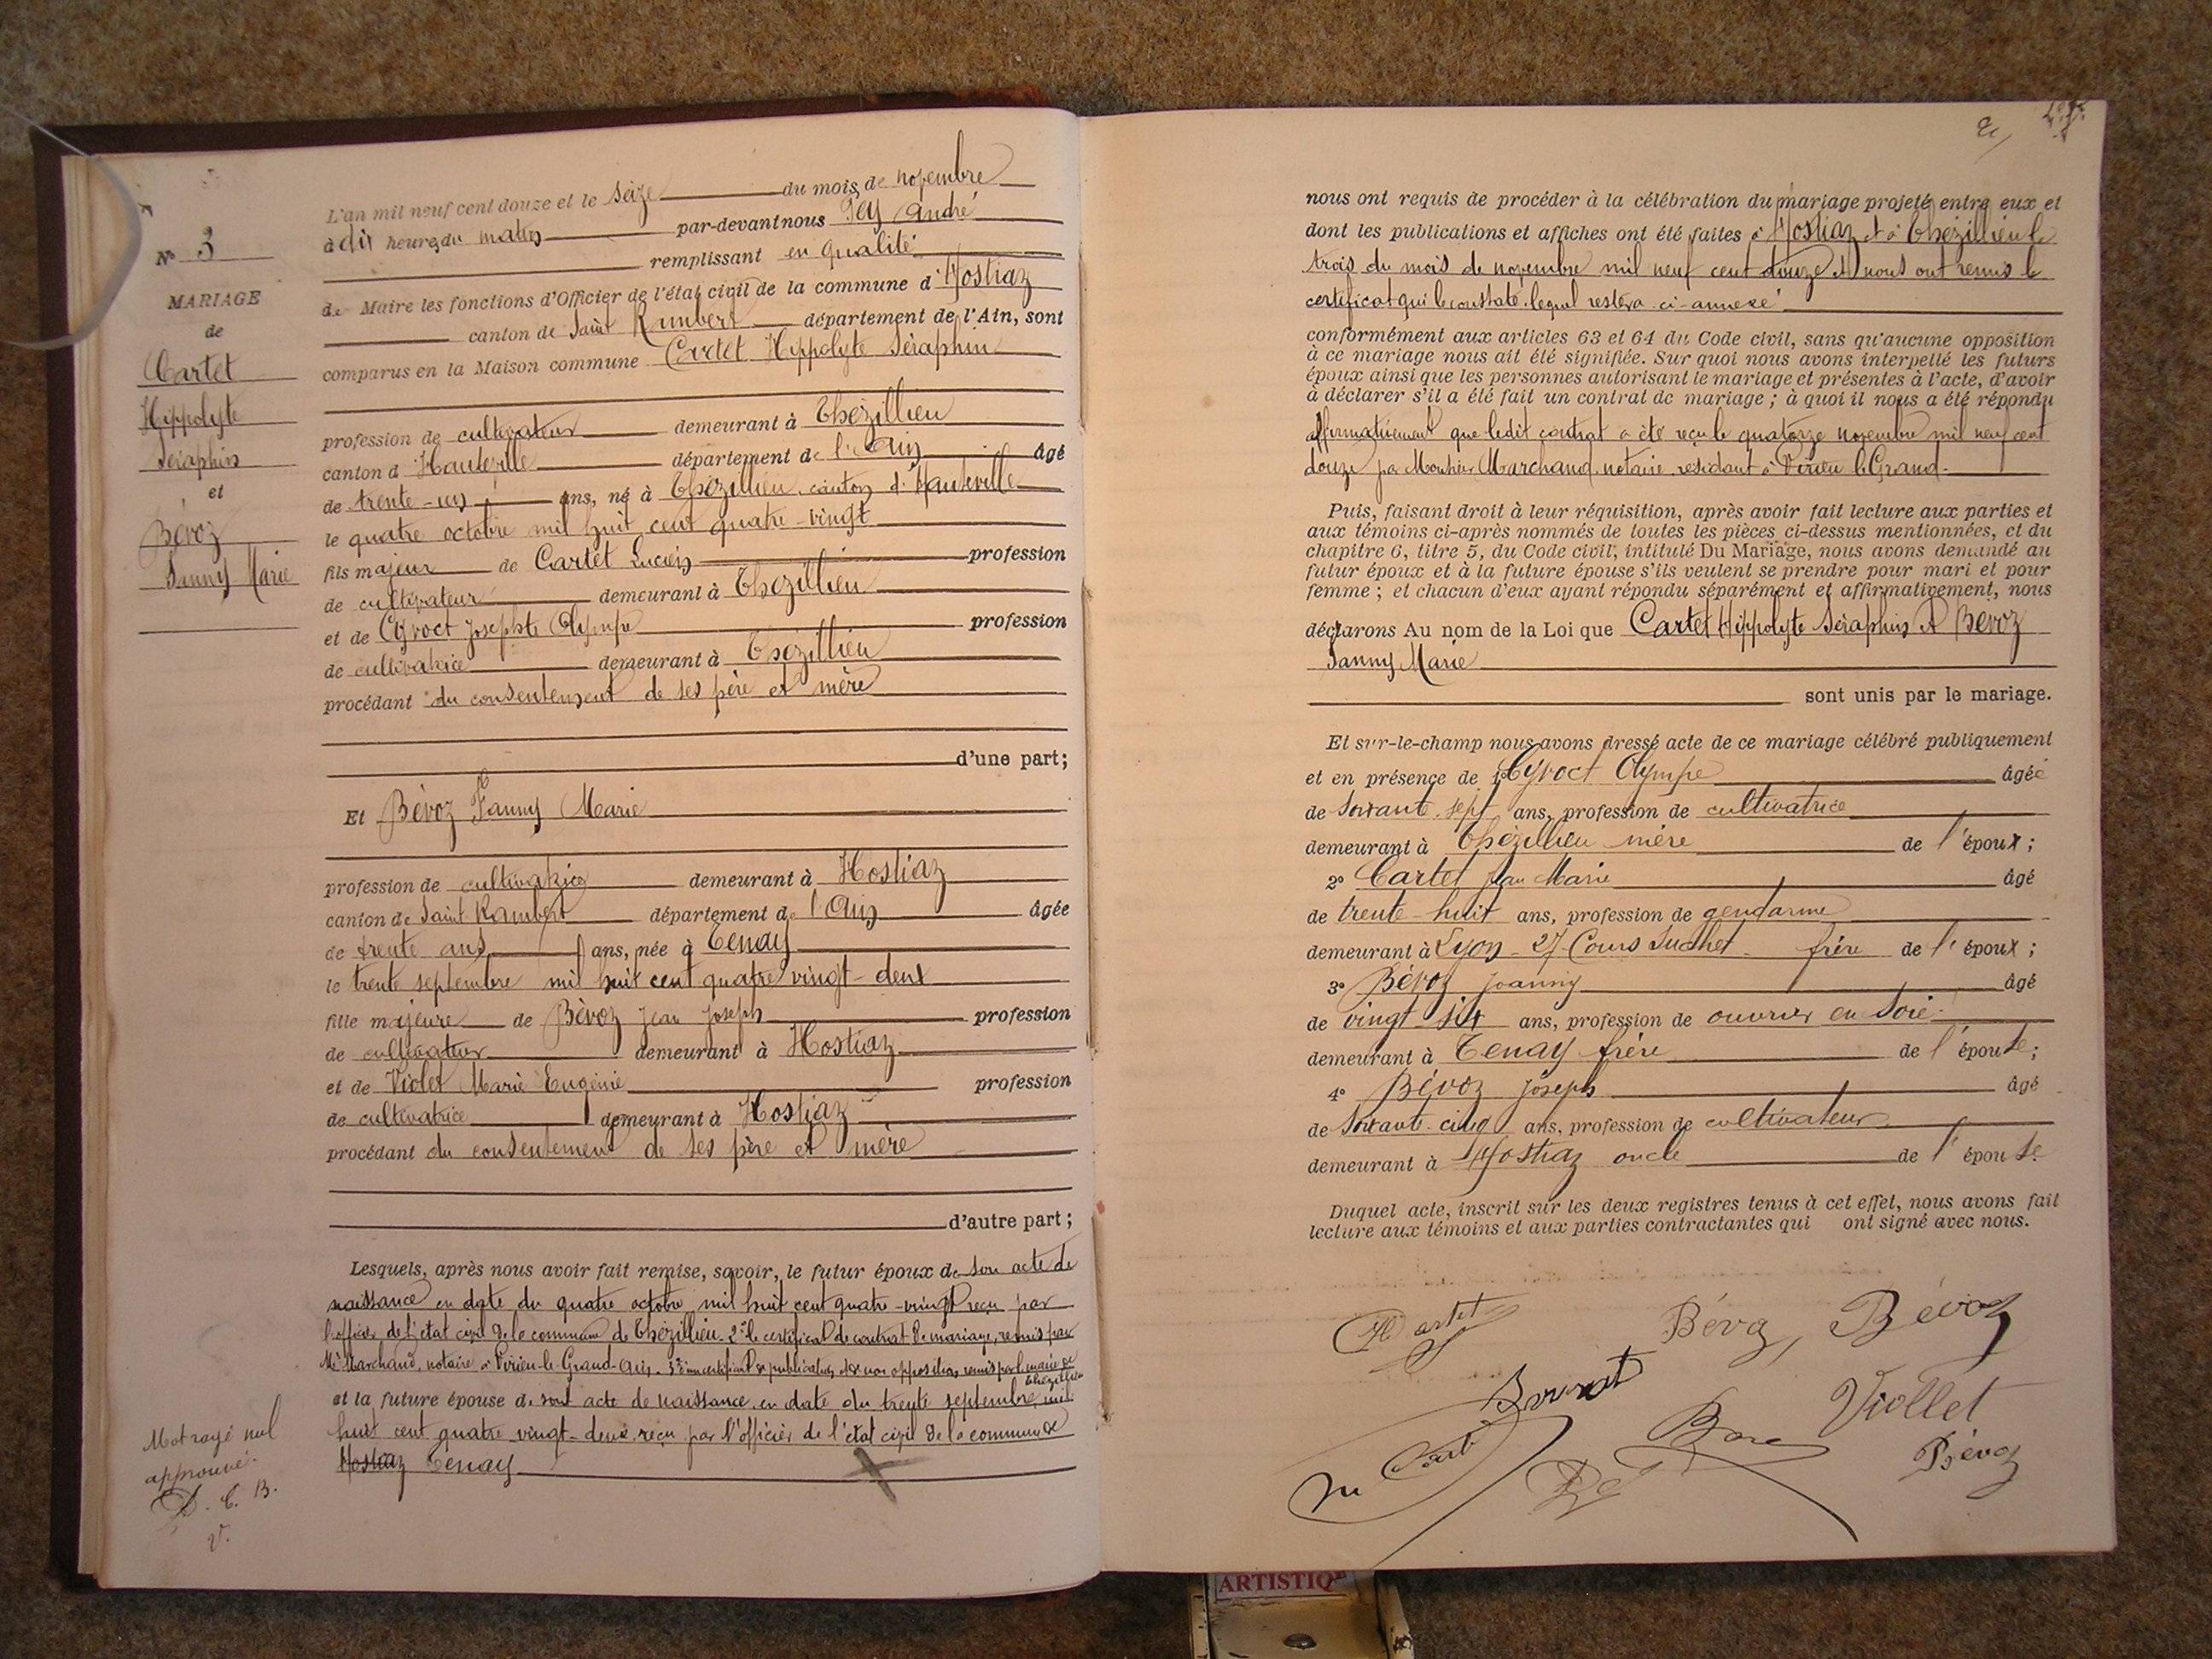 N° 3
MARIAGE
de
Cartet
Hippolyte
Séraphin
et
Bévoz
Fanny Marie
L'an mil neuf cent douze et le seize du mois de novembre
à dix heures du matin par-devant nous Pey André
remplissant en qualité
de Maire les fonctions d'Officier de l'état civil de la commune d'Hostiaz
canton de Saint Rambert département de l'Ain, sont
comparus en la Maison commune Cartet Hippolyte Séraphin
profession de cultivateur demeurant à Thézillieu
canton d'Hauteville département de l'Ain âgé
de trente-un ans, né à Thézillieu, canton d'Hauteville
le quatre octobre mil huit cent quatre-vingt
fils majeur de Cartet Lucien profession
de cultivateur demeurant à Thézillieu
et de Cyvoct Josephte Olympe profession
de cultivatrice demeurant à Thézillieu
procédant du consentement de ses père et mère
d'une part;
Et Bévoz Fanny Marie
profession de cultivatrice demeurant à Hostiaz
canton de Saint Rambert département de l'Ain âgée
de trente ans ans, née à Tenay
le trente septembre mil huit cent quatre vingt-deux
fille majeure de Bévoz Jean Joseph profession
de cultivateur demeurant à Hostiaz
et de Violet Marie Eugénie profession
de cultivatrice demeurant à Hostiaz
procédant du consentement de ses père et mère
d'autre part;
Lesquels, après nous avoir fait remise, savoir, le futur époux de son acte de
naissance en date du quatre octobre mil huit cent quatre-vingt reçu par
l'officier de l'état civil de la commune de Thézillieu. 2° le certificat de contrat de mariage, remis par
Me Marchand, notaire à Virieu-le-Grand-Ain. 3° un certificat de publication et de non opposition remis par le maire de
Thézillieu
et la future épouse de son acte de naissance en date du trente septembre mil
huit cent quatre vingt-deux reçu par l'officier de l'état civil de la commune de
Hostiaz Tenay
Mot rayé nul
approuvé.
C. B.
V.
nous ont requis de procéder à la célébration du mariage projeté entre eux et
dont les publications et affiches ont été faites à Hostiaz et à Thézillieu le
trois du mois de novembre mil neuf cent douze et nous ont remis le
certificat qui le constate, lequel restera ci-annexé
conformément aux articles 63 et 64 du Code civil, sans qu'aucune opposition
à ce mariage nous ait été signifiée. Sur quoi nous avons interpellé les futurs
époux ainsi que les personnes autorisant le mariage et présentes à l'acte, d'avoir
à déclarer s'il a été fait un contrat de mariage ; à quoi il nous a été répondu
affirmativement que ledit contrat a été reçu le quatorze novembre mil neuf cent
douze par Monsieur Marchand notaire résidant à Virieu le Grand.
Puis, faisant droit à leur réquisition, après avoir fait lecture aux parties et
aux témoins ci-après nommés de toutes les pièces ci-dessus mentionnées, et du
chapitre 6, titre 5, du Code civil, intitulé Du Mariage, nous avons demandé au
futur époux et à la future épouse s'ils veulent se prendre pour mari et pour
femme ; et chacun d'eux ayant répondu séparément et affirmativement, nous
déclarons Au nom de la Loi que Cartet Hippolyte Séraphin et Bévoz
Fanny Marie
sont unis par le mariage.
Et sur-le-champ nous avons dressé acte de ce mariage célébré publiquement
et en présence de 1° Cyvoct Olympe âgée
de soixante-sept ans, profession de cultivatrice
demeurant à Thézillieu mère de l'époux ;
2° Cartet Jean Marie âgé
de trente-huit ans, profession de gendarme
demeurant à Lyon - 27 Cours Suchet - frère de l'époux ;
3° Bévoz Joanny âgé
de vingt-six ans, profession de ouvrier en soie
demeurant à Tenay frère de l'épouse ;
4° Bévoz Joseph âgé
de soixante-cinq ans, profession de cultivateur
demeurant à Hostiaz oncle de l'épouse
Duquel acte, inscrit sur les deux registres tenus à cet effet, nous avons fait
lecture aux témoins et aux parties contractantes qui ont signé avec nous.
Bévoz Bévoz
Viollet
Bévoz
ARTISTIQ